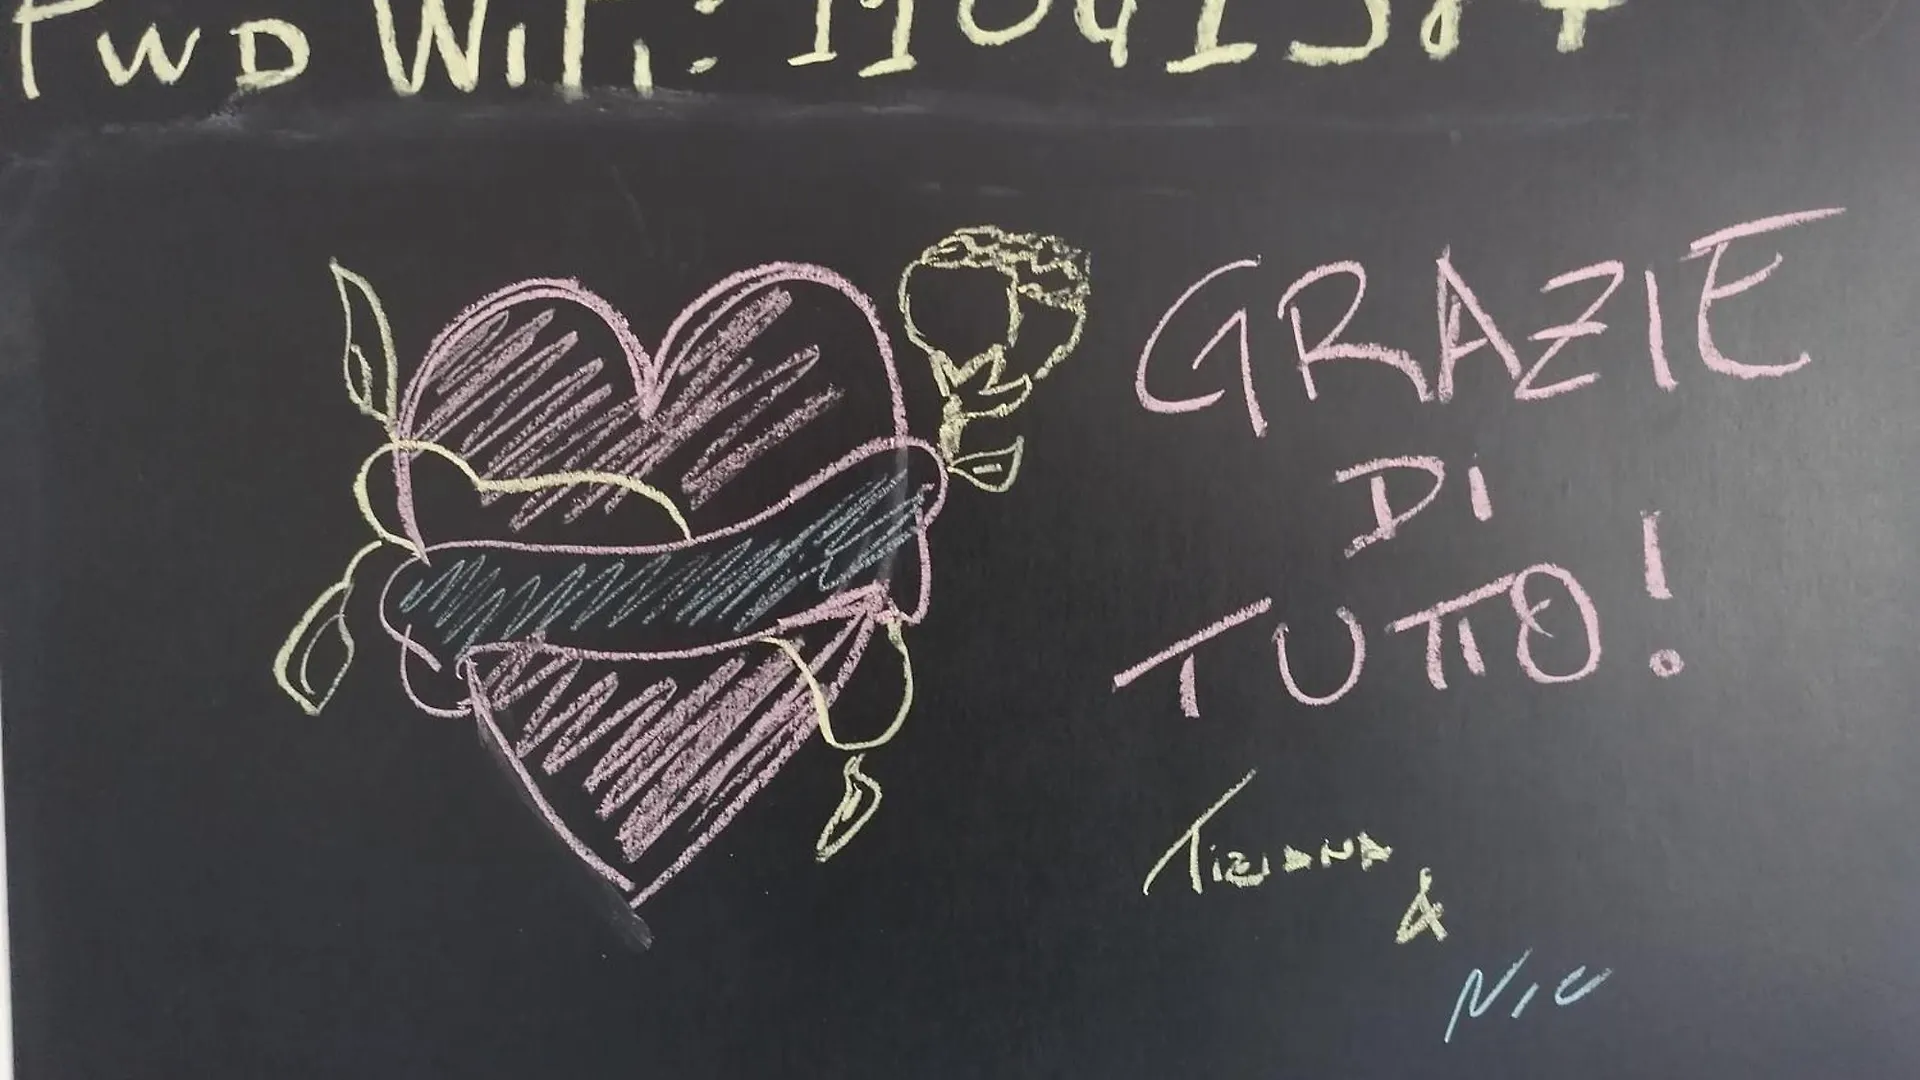 PWD WiFi:
GRAZIE
DI
TUTTO!
TIZIANA
&
NIC